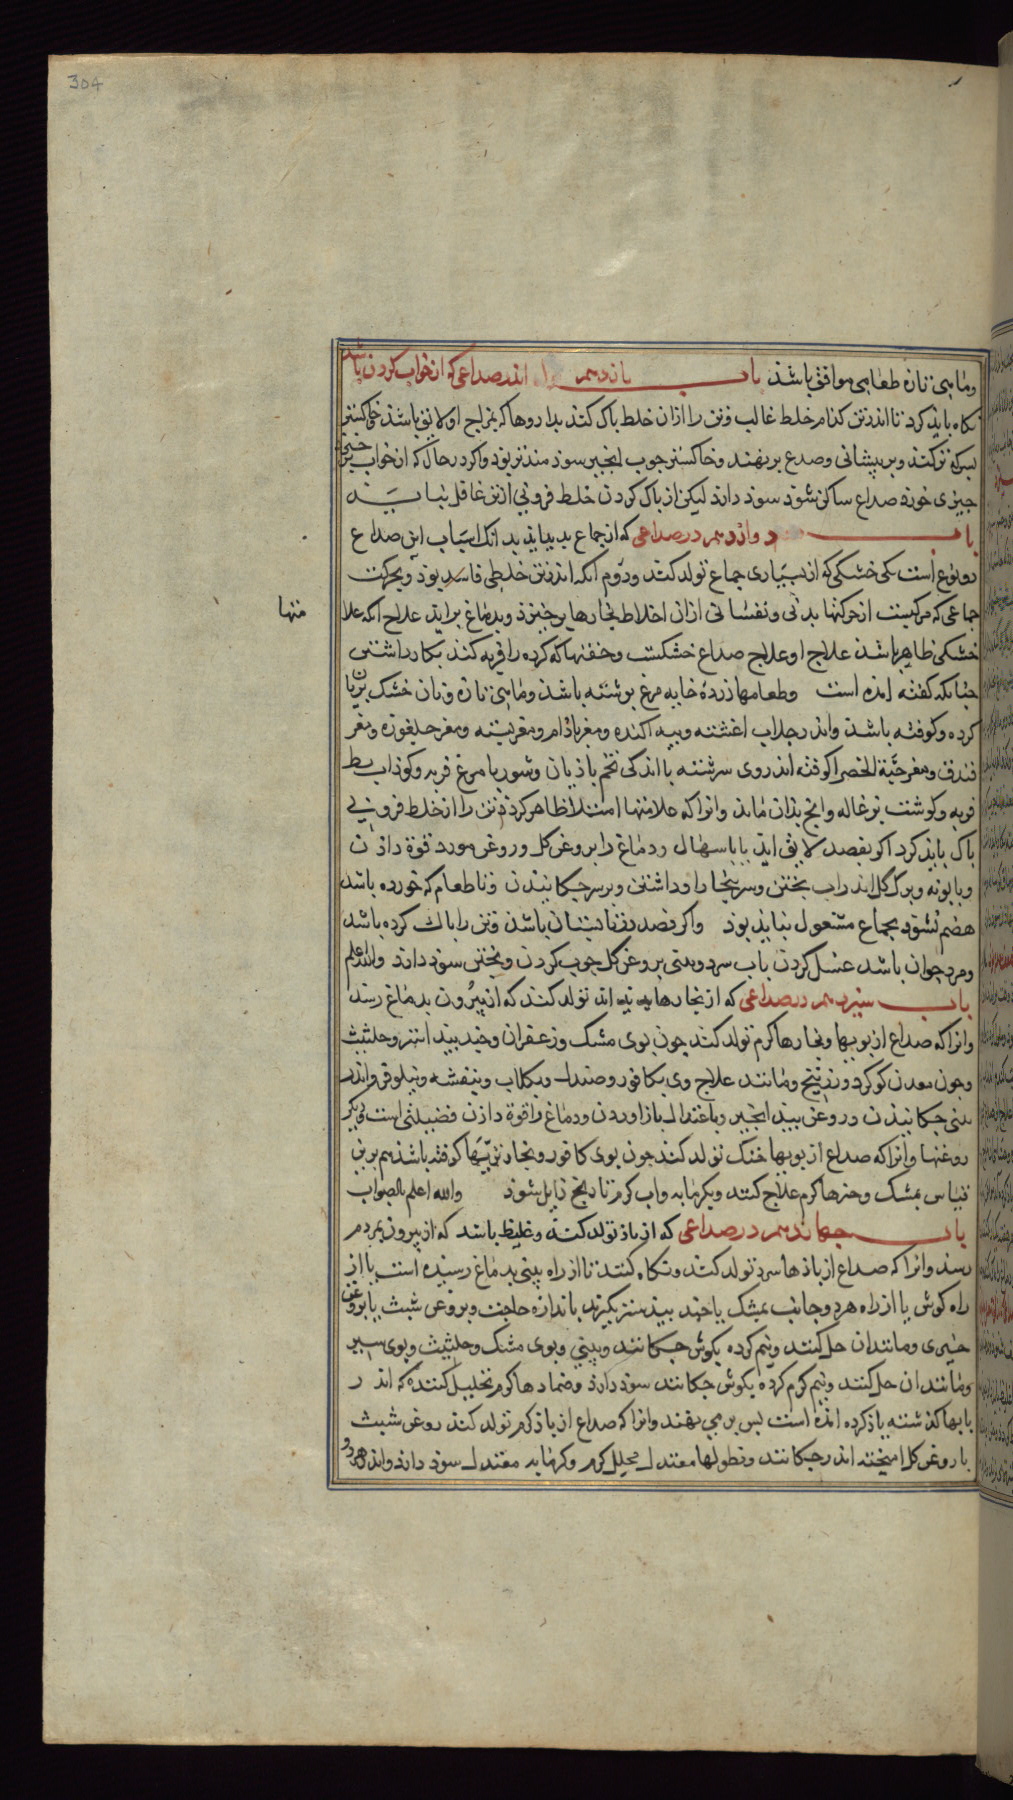 304
وماهی تازه طعامی موافق باشذ باب یازدهم اندر صداعی که از خواب کردن باشد
نکاه بایذ کرد تا اندر تن کدام خلط غالب و تن را ازان خلط باک کنند بداروها که بمزاج او لایق باشذ خاکستر
بسرکه تر کنند و بر بیشانی و صدغ بر نهند و خاکستر جوب انجیر سوذمندتر بوذ و اکر در حال که از خواب برخیزد
جیزی خورد صداع ساکن شوذ سوذ دارذ لیکن از باک کردن خلط فزونی از تن غافل نباید
باب دوازدهم در صداعی که از جماع بدید ایذ بدانک اسباب این صداع
دو نوع است یکی خشکی که از بسیاری جماع تولد کند و دوم انکه اندر تن خلطی فاسد بوذ و بحرکت
جماعی که مرکبست از حرکتها بدنی و نفسانی ازان اخلاط بخارها برخیزذ و بدماغ براید علاج انکه علا
منها
خشکی ظاهر باشذ علاج او علاج صداع خشکست و حقنها که کرده را فربه کند بکار داشتن
جنانکه کفته امذه است وطعامها زرده خایه مرغ برشته باشذ وماهی تازه و نان خشک بریان
کرده و کوفته باشذ و اندر جلاب اغشته و بیه اکنده و مغز باذام و مغز بسته و مغز جلغوزه و مغز
فندق و مغز حبة الخضرا کوفته اندر وی سرشته با اندکی تخم باذیان و شوربا مرغ فربه و کوذاب بط
فربه و کوشت بزغاله و انج بذان ماند و انرا که علامتها امتلا ظاهر کردذ تن را از خلط فزونی
باک بایذ کرد اکر بفصد لایق ایذ یا باسهال و دماغ را بروغن کل و روغن مورد قوة داذن
و بابونه و برک کل اندر اب بختن و سر ببخار او داشتن و بر سر جکانیدن و تا طعام که خورده باشد
هضم نشوذ بجماع مشغول نبایذ بوذ و اکر قصد باشذ و تن را باک کرده باشد
و مرد جوان باشد غسل کردن باب سرد و بتن بروغن کل جرب کردن و بختن سوذ دارذ والله اعلم
باب سیزدهم در صداعی که از بخارها بد تولد کند که از بیرون بدماغ رسذ
وانرا که صداع از بویها و بخارها کرم تولد کند جون بوی مشک و زعفران و جندبیذاستر و حلتیث
و جون معدن کوکرد و زرنیخ و مانند علاج وی بکافور و صندل و بکلاب و بنفشه و نیلوفر و اندر
بینی جکانیذن و روغن بیذانجیر و باعتدال باز اوردن و دماغ را قوة داذن فضیلتی است دیکر
روغنها وانرا که صداع از بویها خنک تولد کند جون بوی کافور و بخار تبها کوفته باشذ هم برین
قیاس بمشک و جیزها کرم علاج کنند و بکرمابه و اب کرم تا رنج زایل شوذ والله اعلم بالصواب
باب جهاردهم در صداعی که از باذ تولد کند و غلیظ باشد که از بیرون بمردم
رسذ وانرا که صداع از باذها سرد تولد کند و نکاه کنند تا از راه بینی بدماغ رسیذه است یا از
راه کوش یا از راه هر دو جانب بمشک یا جندبیذستر بکیرند باندازه حاجت و بروغن شبث یا بروغن
خیری و مانند ان حل کنند و نیم کرده بکوش جکانند و ببینی و بوی مشک و حلتیث و بوی سیر
و مانند ان حل کنند و نیم کرم کرده بکوش جکانند سوذ دارذ و ضمادها کرم تحلیل کننده که اندر
بابها کذشته یاذ کرده امذه است بس بر می نهند وانرا که صداع از باذ کرم تولد کند روغن شبث
با روغن کل امیخته اندر جکانند و نطولها معتدل محلل کرم و کرمابه معتدل سوذ دارذ و اندر هر دو